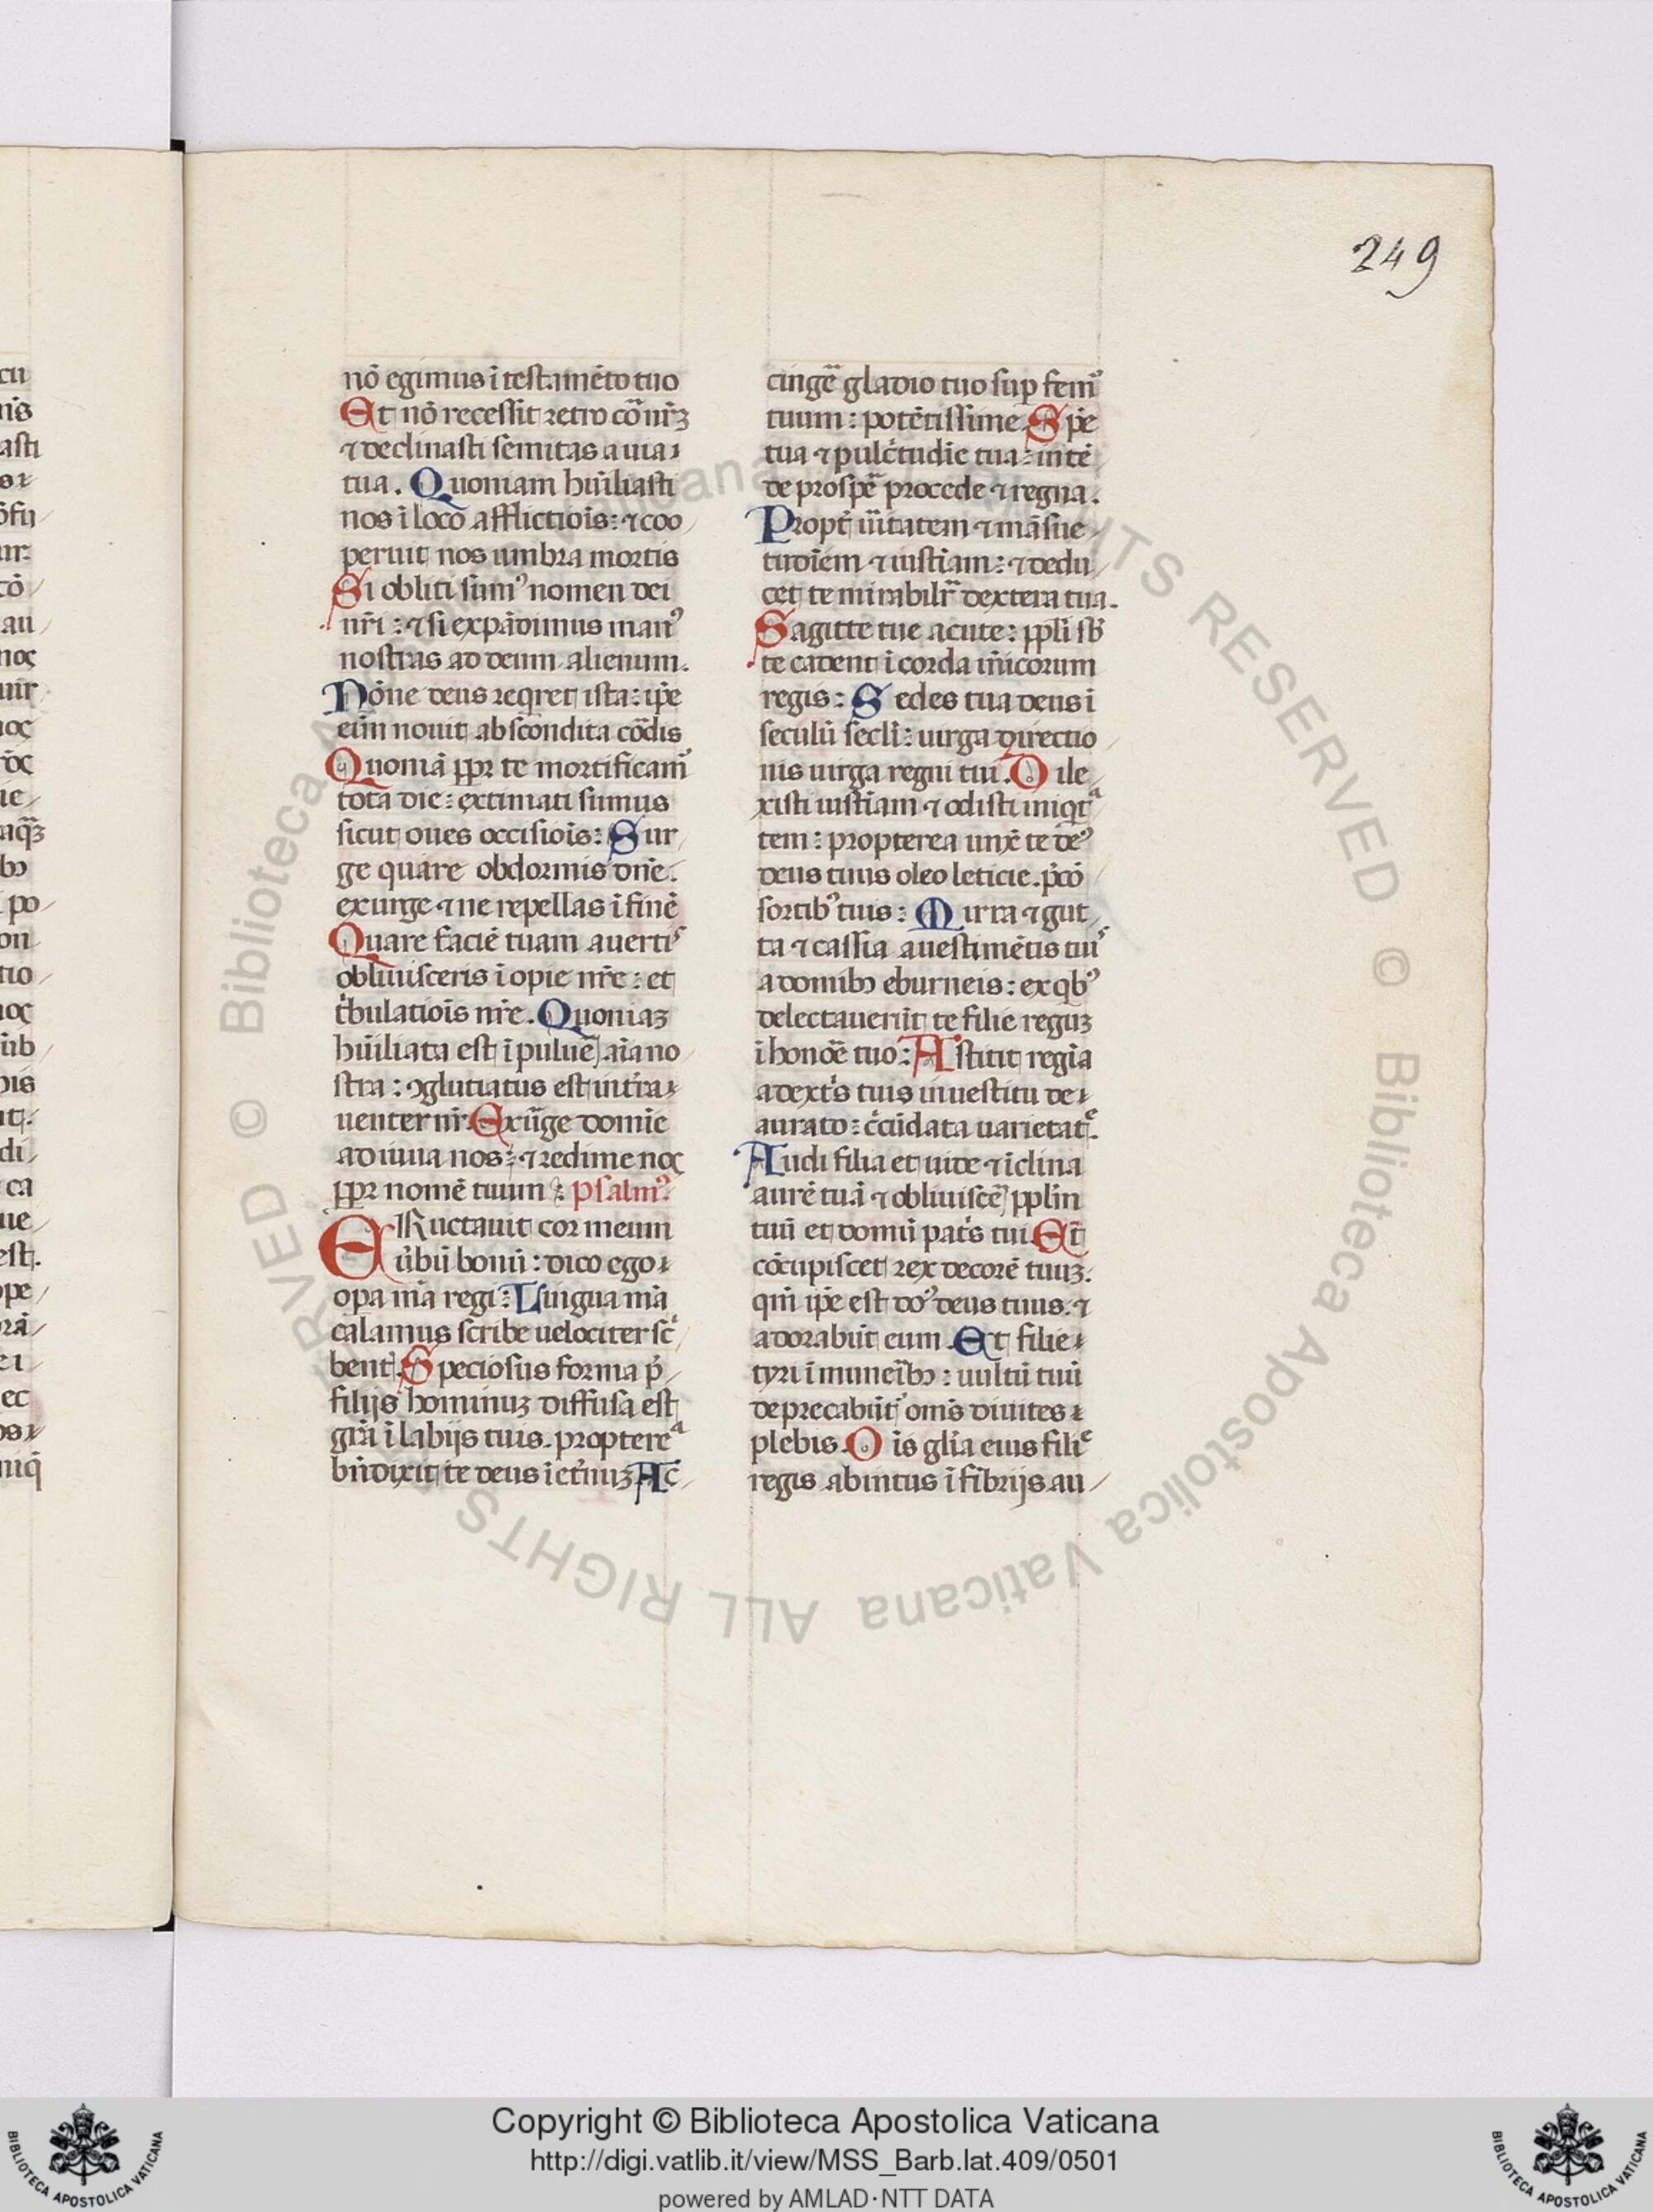 249
nō egimus ī testamēto tuo
Et nō recessit retro cō nr̄ꝫ
⁊ declinasti semitas a uia
tua. Quoniam hūiliasti
nos ī loco afflictiōis: ⁊ coo
peruit nos umbra mortis
Si obliti sumꝰ nomen dei
nr̄i: ⁊ si expādimus manꝰ
nostras ad deum alienum.
Nōne deus reqret ista: ip̄e
eīm nouit abscondita cōdis
Quomā ꝓpr te mortificamꝰ
tota die: extimati sumus
sicut oues occisiōis: Sur
ge quare obdormis dn̄e.
exurge ⁊ ne repellas ī finē
Quare faciē tuam auertis
obliuisceris īopie nr̄e: et
tͥbulatiōis nr̄e. Quoniaꝫ
hūiliata est ī puluē aīa no
stra: ꝯglutiatus est in tr̄a
uenter nr̄. Exurge domīe
adiuua nos: ⁊ redime nos
ꝓpr nomē tuum: psalmꝰ.
ERuctauit cor meum
ūbū bonū: dico ego
opa mā regi: Lingua mā
calamus scribe uelociter scͥ
bent. Speciosus forma p̄
filijs hominuꝫ diffusa est
gr̄a ī labijs tuis. proptereᵃ
bn̄dixit te deus ī et̄nuꝫ Ac
cingē gladio tuo sup femꝰ
tuum: potētissime. Spē
tua ⁊ pulcͥtudīe tua: intē
de prospē procede ⁊ regna.
Propt̄ ūitatem ⁊ māsue
tudīem ⁊ iustīam: ⁊ dedu
cet te mirabilr̄ dextera tua.
Sagitte tue acute: ppl̄i sb̄
te cadent ī corda inīcorum
regis: Sedes tua deus ī
seculū secl̄i: uirga directio
nis uirga regni tui. Dile
xisti iustīam ⁊ odisti iniqtᵃ
tem: propterea unxē te deꝰ
deus tuus oleo leticie. p̄ cō
sortibꝰ tuis: Mirra ⁊ gut
ta ⁊ cassia auestimētis tuiˢ
a domibꝫ eburneis: ex qbꝰ
delectauerūt te filie reguꝫ
ī honoē tuo: Astitit regīa
a dextͥs tuis in uestitu de
aurato: cͥcūdata uarietatᵉ.
Audi filia et uide ⁊ īclina
aurē tuā ⁊ obliuiscē ppl̄m
tuū et domū patͥs tui. Et
cōcupiscet rex decorē tuuꝫ:
qm̄ ip̄e est doꝰ deus tuus. ⁊
adorabūt eum. Et filie
tyri ī muneībꝫ: uultū tuū
deprecabūtͬ omīs diuites
plebis. Oīs gl̄ia eius filiᵉ
regis abintus ī fībrijs au
cu
asti
au
nos
po
di
ca
ue
est.
ope
ec
Copyright © Biblioteca Apostolica Vaticana
http://digi.vatlib.it/view/MSS_Barb.lat.409/0501
powered by AMLAD·NTT DATA
BIBLIOTECA APOSTOLICA VATICANA
BIBLIOTECA APOSTOLICA VATICANA
© Biblioteca Apostolica Vaticana ALL RIGHTS RESERVED © Biblioteca Apostolica Vaticana ALL RIGHTS RESERVED